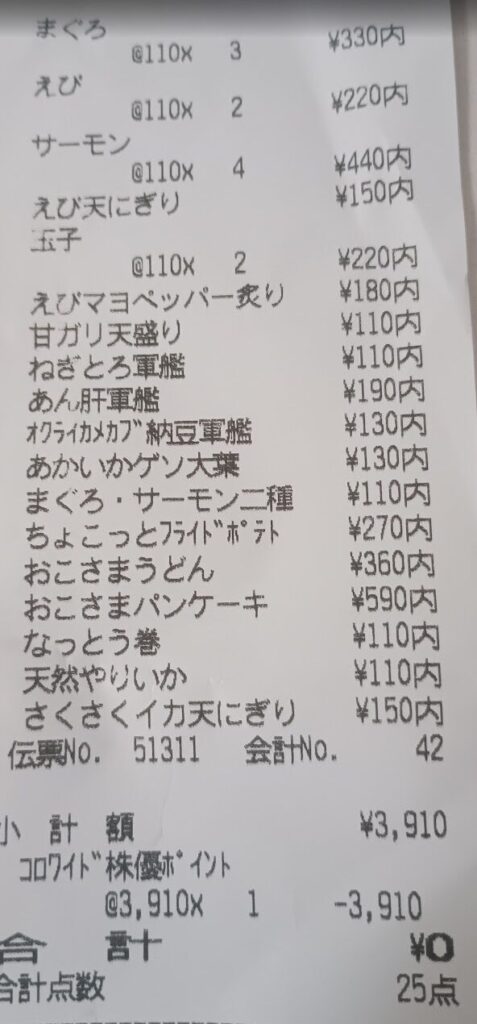 まぐろ
@110x 3 ¥330内
えび
@110x 2 ¥220内
サーモン
@110x 4 ¥440内
えび天にぎり ¥150内
玉子
@110x 2 ¥220内
えびマヨペッパー炙り ¥180内
甘ガリ天盛り ¥110内
ねぎとろ軍艦 ¥110内
あん肝軍艦 ¥190内
オクライカメカブ納豆軍艦 ¥130内
あかいかゲソ大葉 ¥130内
まぐろ・サーモン二種 ¥110内
ちょこっとフライドポテト ¥270内
おこさまうどん ¥360内
おこさまパンケーキ ¥590内
なっとう巻 ¥110内
天然やりいか ¥110内
さくさくイカ天にぎり ¥150内
伝票No. 51311 会計No. 42
小計額 ¥3,910
コロワイド株優ポイント
@3,910x 1 -3,910
合計 ¥0
合計点数 25点